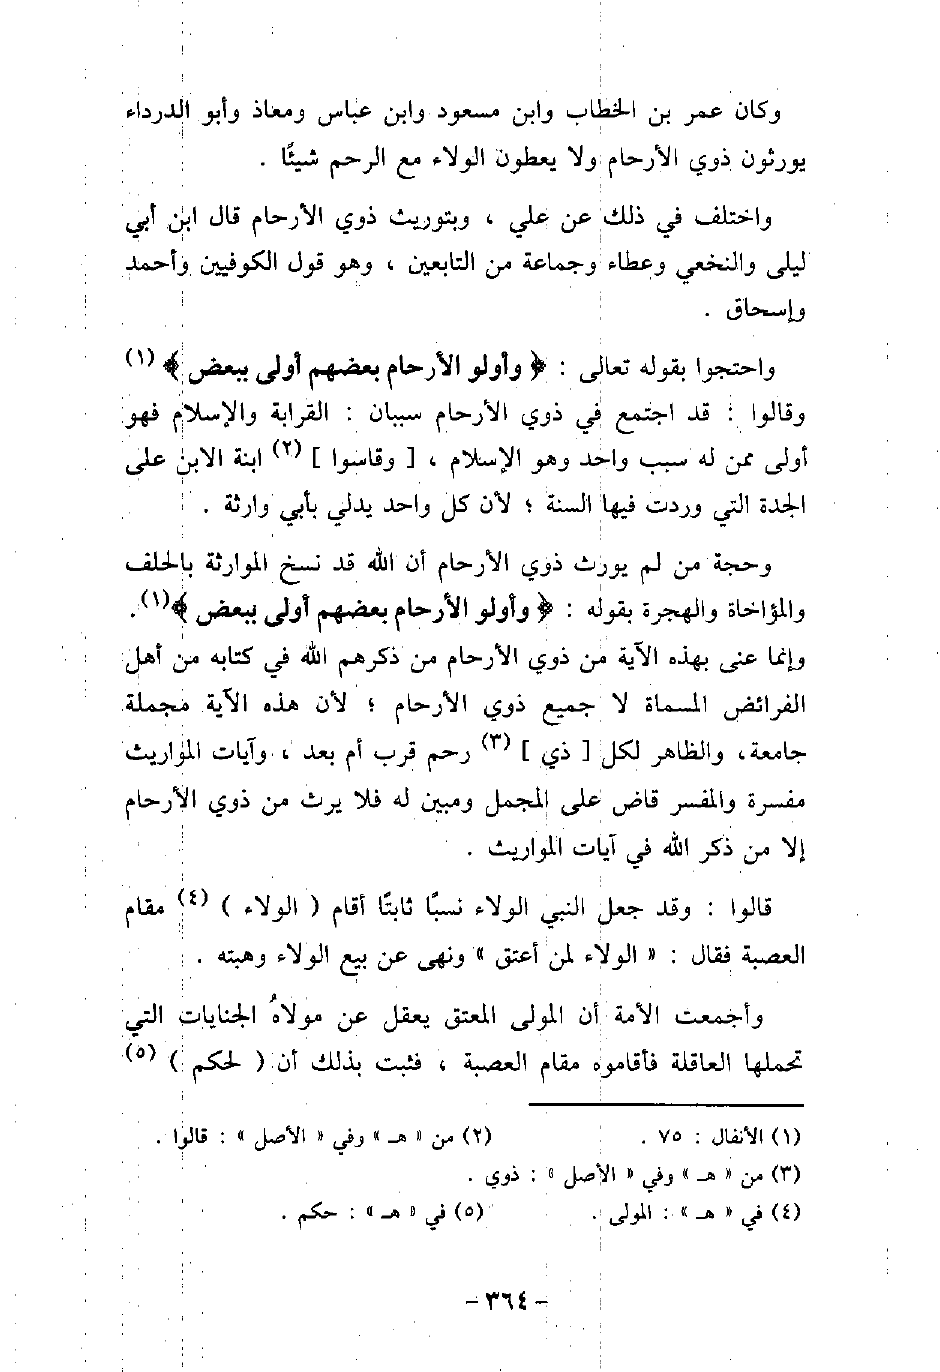 وكان عمر بن الخطاب وابن مسعود وابن عباس ومعاذ وأبو الدرداء
يورثون ذوي الأرحام ولا يعطون الولاء مع الرحم شيئًا .
واختلف في ذلك عن علي ، وبتوريث ذوي الأرحام قال ابن أبي
ليلى والنخعي وعطاء وجماعة من التابعين ، وهو قول الكوفيين وأحمد
وإسحاق .
واحتجوا بقوله تعالى : ﴿ وأولو الأرحام بعضهم أولى ببعض ﴾ (١)
وقالوا : قد اجتمع في ذوي الأرحام سببان : القرابة والإسلام فهو
أولى ممن له سبب واحد وهو الإسلام ، [ وقاسوا ] (٢) ابنة الابن على
الجدة التي وردت فيها السنة ؛ لأن كل واحد يدلي بأبي وارثة .
وحجة من لم يورث ذوي الأرحام أن الله قد نسخ الموارثة بالحلف
والمؤاخاة والهجرة بقوله : ﴿ وأولو الأرحام بعضهم أولى ببعض ﴾(١).
وإنما عنى بهذه الآية من ذوي الأرحام من ذكرهم الله في كتابه من أهل
الفرائض المسماة لا جميع ذوي الأرحام ؛ لأن هذه الآية مجملة
جامعة، والظاهر لكل [ ذي ] (٣) رحم قرب أم بعد ، وآيات المواريث
مفسرة والمفسر قاض على المجمل ومبين له فلا يرث من ذوي الأرحام
إلا من ذكر الله في آيات المواريث .
قالوا : وقد جعل النبي الولاء نسبًا ثابتًا أقام ( الولاء ) (٤) مقام
العصبة فقال : « الولاء لمن أعتق » ونهى عن بيع الولاء وهبته .
وأجمعت الأمة أن المولى المعتق يعقل عن مولاهُ الجنايات التي
تحملها العاقلة فأقاموه مقام العصبة ، فثبت بذلك أن ( لحكم ) (٥)
(١) الأنفال : ٧٥ . (٢) من « هـ » وفي « الأصل » : قالوا .
(٣) من « هـ » وفي « الأصل » : ذوي .
(٤) في « هـ » : المولى . (٥) في « هـ » : حكم .
- ٣٦٤ -